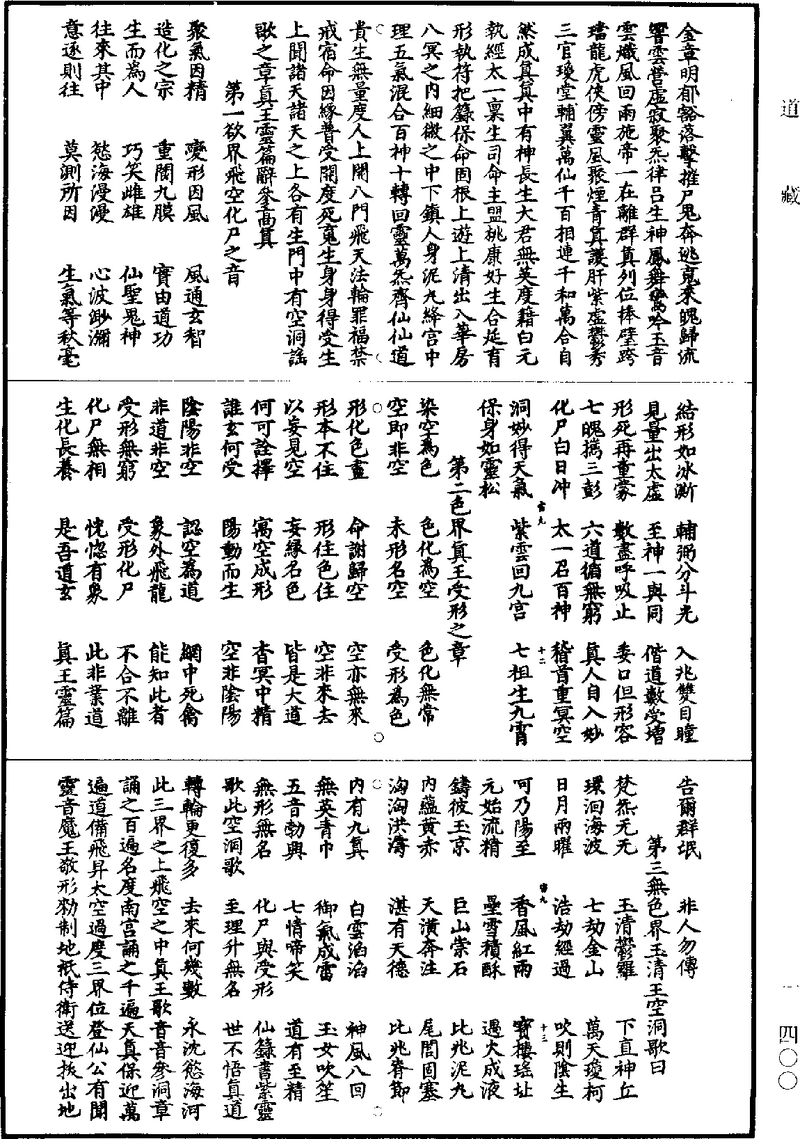 道藏
一
四〇〇
金章明郁豁落擊摧尸鬼奔逃䰟來魄歸流
響雲營虛寂聚炁律呂生神鳳舞鸞吟玉音
雲熾風回雨施帝一在離群真列位捧璧跨
璫龍虎俠傍靈風聚煙青真護肝紫虛鬱秀
三官瓊堂輔翼萬仙千百相連千和萬合自
然成真真中有神長生大君無英度籍白元
執經太一稟生司命主盟桃康好生合延有
形執符把籙保命固根上遊上清出入華房
八冥之內細微之中下鎮人身泥丸絳宮中
理五氣混合百神十轉回靈萬炁齊仙仙道
貴生無量度人上開八門飛天法輪罪福禁
戒宿命因緣普受開度死䰟生身身得受生
上聞諸天諸天之上各有生門中有空洞謠
歌之章真王靈篇辭參高真
第一欲界飛空化尸之音
聚氣因精　變形因風　風通玄智
造化之宗　重關九膜　實由道功
生而為人　巧笑雌雄　仙聖鬼神
往來其中　慾海漫漫　心波渺瀰
意逐則往　莫測所因　生氣等秋毫
結形如冰澌　輔弼分斗光　入兆雙目瞳
見量出太虛　至神一與同　偕道數受增
形死再重蒙　數盡呼吸止　委口但形容
七魄攜三彭　六道循無窮　真人自入妙
化尸白日沖　太一召百神　稽首重冥空
洞妙得天氣　紫雲回九宮　七祖生九霄
保身如靈松
第二色界真王受形之章
染空為色　色化為空　色化無常
空即非空　未形名空　受形為色
形化色盡　命謝歸空　空亦無來
形本不住　形住色住　空非來去
以妄見空　妄緣名色　皆是大道
何可詮擇　寓空成形　杳冥中精
誰玄何受　陽動而生　空非陰陽
陰陽非空　認空為道　網中死禽
非道非空　象外飛龍　能知此者
受形無窮　受形化尸　不合不離
化尸無相　恍惚有象　此非業道
生化長養　是吾道玄　真王靈篇
告爾群氓　非人勿傳
第三無色界玉清王空洞歌曰
梵炁元元　玉清鬱羅　下直神丘
環洄海波　七劫金山　萬天瓊柯
日月兩曜　浩劫經過　吹則陰生
呵乃陽至　香風紅雨　寶樓瑤址
元始流精　壘雪積酥　遇火成液
鑄彼玉京　巨山崇石　比兆泥丸
內蘊黃赤　天潢奔注　尾閭固塞
洶洶洪濤　湛有天德　比兆脊節
內有九真　白雲滔滔　神風八回
無英青巾　御氣成雷　玉女吹笙
五音勃興　七情啼笑　道有至精
無形無名　化尸與受形　仙籙書紫靈
歌此空洞歌　至理升無名　世不悟真道
轉輪更復多　去來何幾數　永沈慾海河
此三界之上飛空之中真王歌音音參洞章
誦之百遍名度南宮誦之千遍天真保迎萬
遍道備飛昇太空過度三界位登仙公有聞
靈音魔王敬形勑制地祇侍衛送迎拔出地